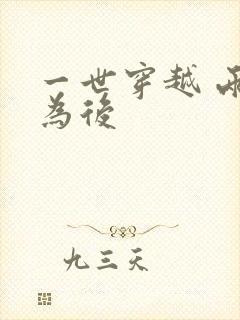 一世穿越
為後
九三天